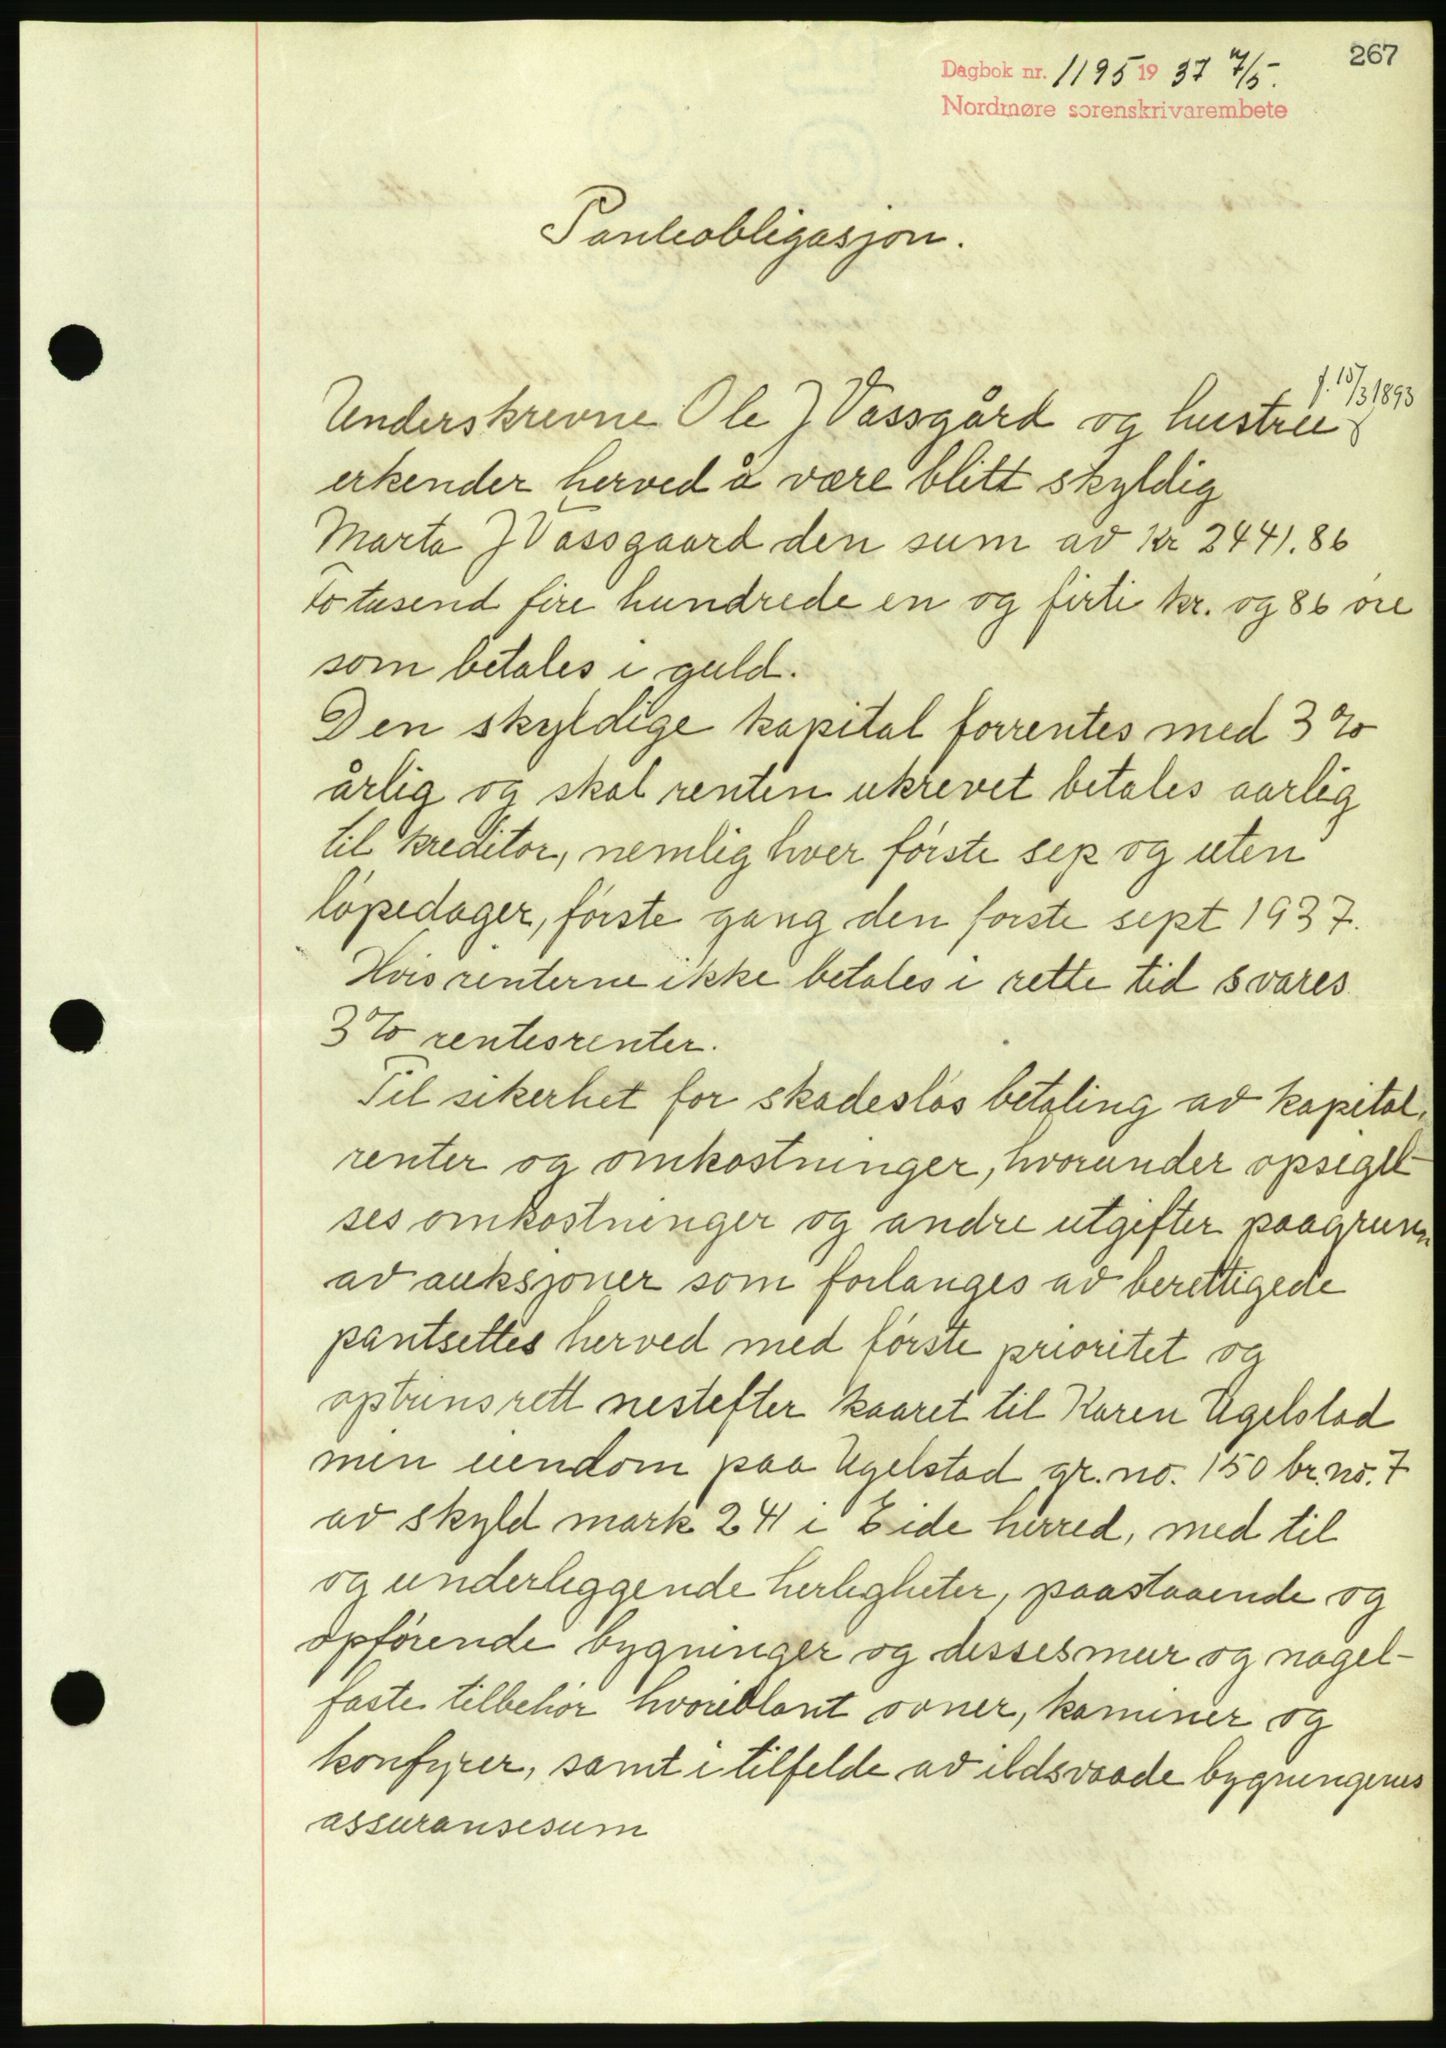 267
Dagbok nr. 1195 1937 7/5.
Nordmøre sorenskrivarembete
Panteobligasjon.
f. 15/3 1893
Underskrevne Ole J Vassgård og hustru
erkender herved å være blitt skyldig
Marta J Vassgaard den sum av kr 2441.86
To tusend fire hundrede en og firti kr. og 86 öre
som betales i guld.
Den skyldige kapital forrentes med 3%
årlig og skal renten ukrevet betales aarlig
til kreditor, nemlig hver förste sep og uten
löpedager, förste gang den forste sept 1937.
Hvis renterne ikke betales i rette tid svares
3% rentesrenter.
Til sikerhet for skadeslös betaling av kapital,
renter og omkostninger, hvorunder opsigel-
ses omkostninger og andre utgifter paagrunn
av auksjoner som forlanges av berettigede
pantsettes herved med förste prioritet og
optrinsrett nestefter kaaret til Karen Ugelstad
min eiendom paa Ugelstad gr. no. 150 br. no. 7
av skyld mark 2 41 i Eide herred, med til
og underliggende herligheter, paastaaende og
opförende bygninger og dessesmur og nagel-
faste tilbehör hvoriblant ovner, kaminer og
konfyrer, samt i tilfelde av ildsvaade bygningenes
assuransesum